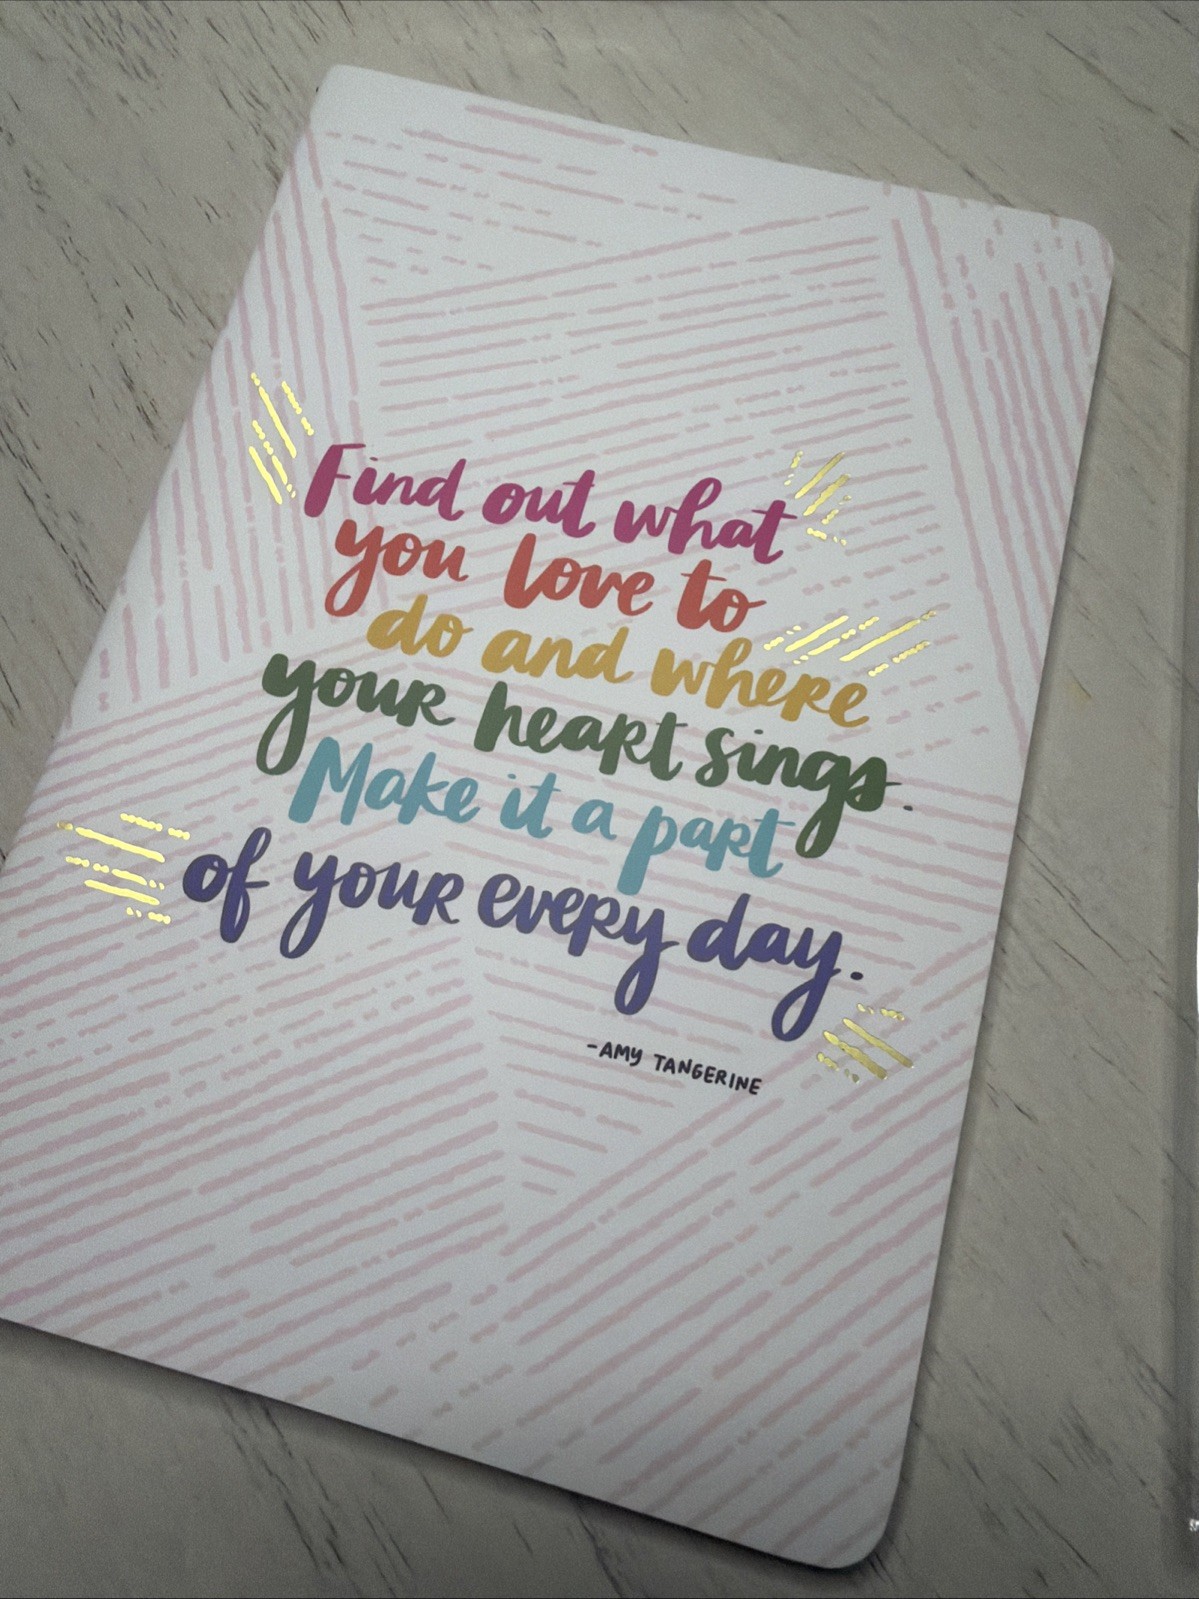 Find out what
you love to
do and where
your heart sings.
Make it a part
of your every day.
-AMY TANGERINE